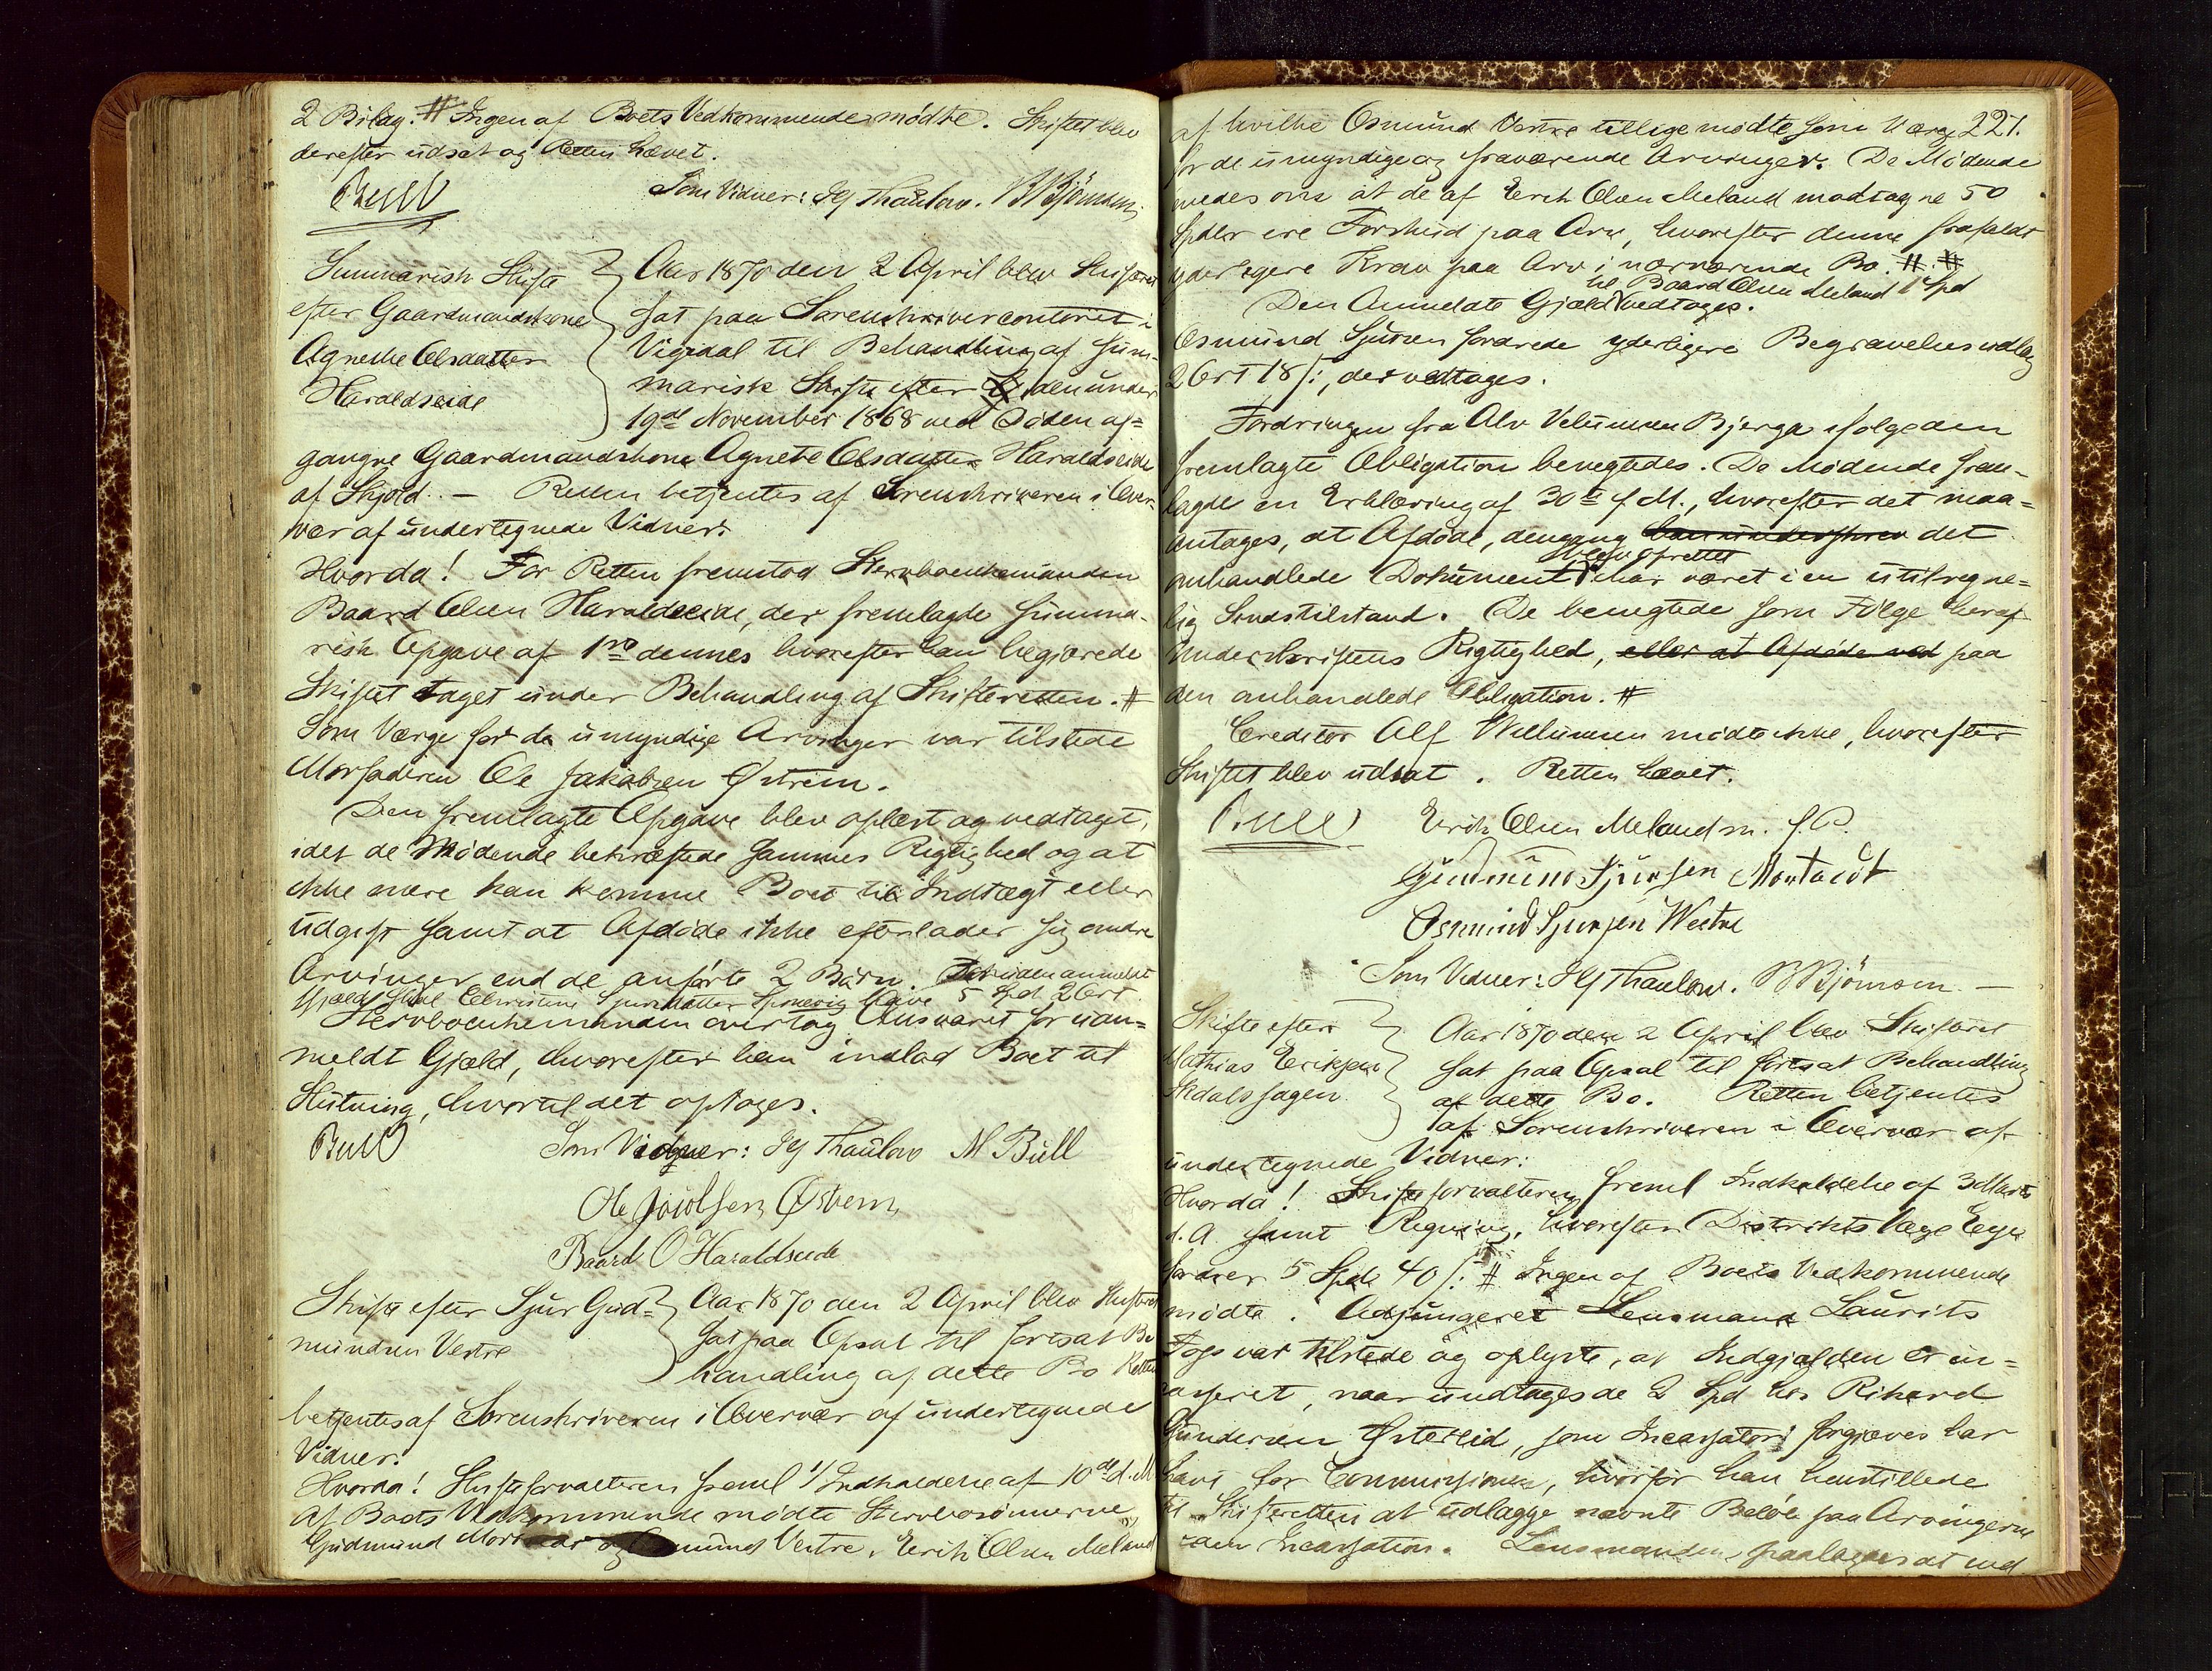 2 Bilag. # Ingen af Boets Vedkommende mødte. Skiftet blev
derefter udsat og Retten hævet.
Bull
Som Vidner: Hg Thaulow. B Bjørnsen
Summarisk Skifte
efter Gaardmandskone
Agnethe Olsdatter
Haraldseide
Aar 1870 den 2 April blev Skifteret
sat paa Sorenskrivercontoret i
Vigedal til Behandling af sum-
marisk Skifte efter den under
19de November 1868 ved Døden af-
gangne Gaardmandskone Agnete Olsdatter Haraldseide
af Skjold. — Retten betjentes af Sorenskriveren i Over-
vær af undertegnede Vidner.
Hvorda! For Retten fremstod Stervboenkemanden
Baard Olsen Haraldseide, der fremlagde summa-
risk Opgave af 1ste dennes hvorefter han begjærede
Skiftet taget under Behandling af Skifteretten. #
Som Værge for de umyndige Arvinger var tilstede
Morfaderen Ole Jakobsen Østrem.
Den fremlagte Opgave blev oplæst og vedtaget,
idet de Mødende bekræftede sammes Rigtighed og at
ikke mere kan komme Boet til Indtægt eller
Udgift samt at Afdøde ikke efterlader sig andre
Arvinger end de anførte 2 Børn. Foruden anmeldt
Gjæld skal Christine Sjursdatter have 5 Spd 2 Ort.
Stervboenkemanden overtog Ansvaret for uan-
meldt Gjæld, hvorefter han indlod Boet til
Slutning, hvortil det optoges.
Bull
Som Vidner: Hg Thaulow M Bull
Ole Jacobsen Østrem
Baard O Haraldseide
Skifte efter Sjur Gud-
mundsen Vestre
Aar 1870 den 2 April blev Skifteret
sat paa Opsal til fortsat Be
handling af dette Bo Retten
betjentes af Sorenskriveren i Overvær af undertegnede
Vidner.
Hvorda! Skifteforvalteren freml 1/ Indkaldelse af 10de d. M
Af Boets Vedkommende mødte Stervbosønnerne
Gudmund og Osmund Vestre, Erik Olsen Meland
221.
af hvilke Osmund Vestre tillige mødte som Værge
for de umyndige og fraværende Arvinger. De Mødende
enedes om at de af Erik Olsen Meland modtagne 50
Spdlr ere Forskud paa Arv, hvorefter denne frafaldt
yderligere Krav paa Arv i nærværende Bo. # #
til Baard Olsen Meland 1 Spd
Den Anmeldte Gjæld vedtoges.
Osmund Sjursen fordrede yderligere Begravelsesudlæg
2 Ort 18 s:, der vedtoges.
Fordringen fra Alv Velumsen Bjerga ifølge den
fremlagte Obligation benegtedes. De Mødende frem-
lagde en Erklæring af 30te f M., hvorefter det maa-
antages, at Afdøde, dengang han underskrev det
blev oprettet
omhandlede Dokument har været i en utilregne-
lig Sindstilstand. De benegtede som Følge heraf
Underskriftens Rigtighed, eller at Afdøde ved paa
den omhandlede Obligation. #
Creditor Alf Willumsen mødte ikke, hvorefter
Skiftet blev udsat. Retten hævet.
Bull
Erik Olsen Meland m. f. P.
Gudmund Sjursen
Osmund Sjursen Westre
Som Vidner: Hg Thaulow. B Bjørnson. —
Skifte efter
Mathias Eriksen
Aar 1870 den 2 April blev Skifteret
sat paa Opsal til fortsat Behandling
af dette Bo. Retten betjentes
af Sorenskriveren i Overvær af
undertegnede Vidner:
Hvorda! Skifteforvalteren freml Indkaldelse af 3 Marts
d. A samt Regning, hvorefter Distriktslæge
fordrer 5 Spd 40 s: # Ingen af Boets Vedkommende
mødte. Adjungeret Lensmand Laurits
var tilstede og oplyste, at Indgjælden er in-
casseret, naar undtages de 2 Spd hos Rikard
Gundersen Østerlid, som Incassator forgjæves har
havt for Commissionen, hvorfor han henstillede
til Skifteretten at udlægge nævnte Beløb paa Arvingerne
uden Incassation. Lensmanden paalagdes at ind